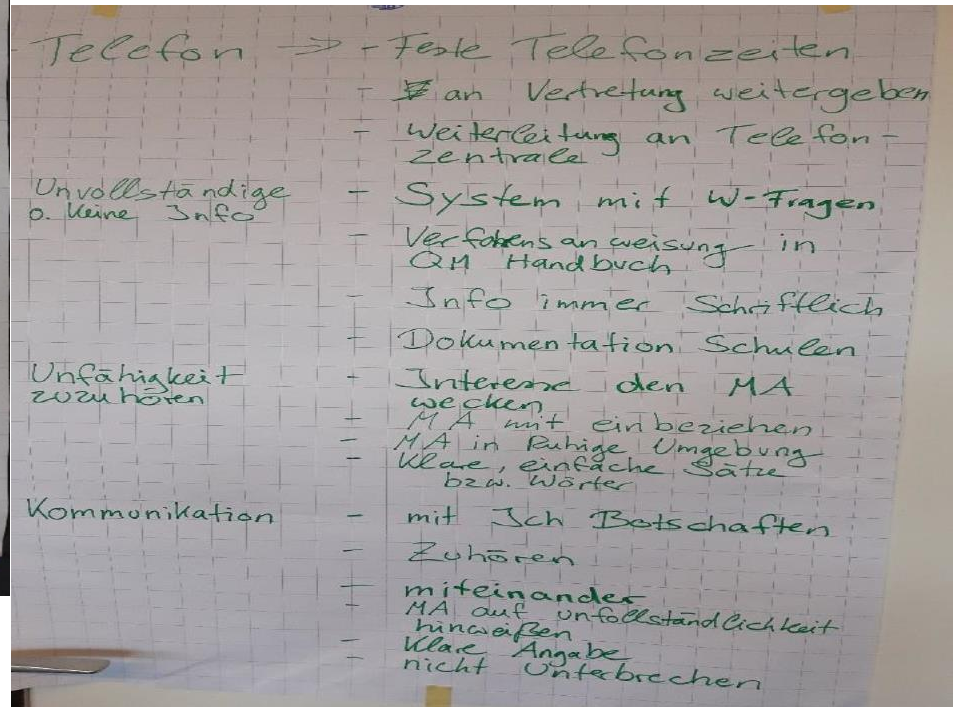 Telefon => - Feste Telefonzeiten
- an Vertretung weitergeben
- Weiterleitung an Telefon-
zentrale
Unvollständige - System mit W-Fragen
o. Keine Info
- Verfahensanweisung in
QM Handbuch
- Info immer Schriftlich
- Dokumentation Schulen
Unfähigkeit - Interesse den MA
zuzuhören wecken
- MA mit einbeziehen
- MA in Ruhige Umgebung
- Klare, einfache Sätze
bzw. Wörter
Kommunikation - mit Ich Botschaften
- Zuhören
- miteinander
- MA auf unfollständlichkeit
hinweißen
- Klare Angabe
- nicht Unterbrechen